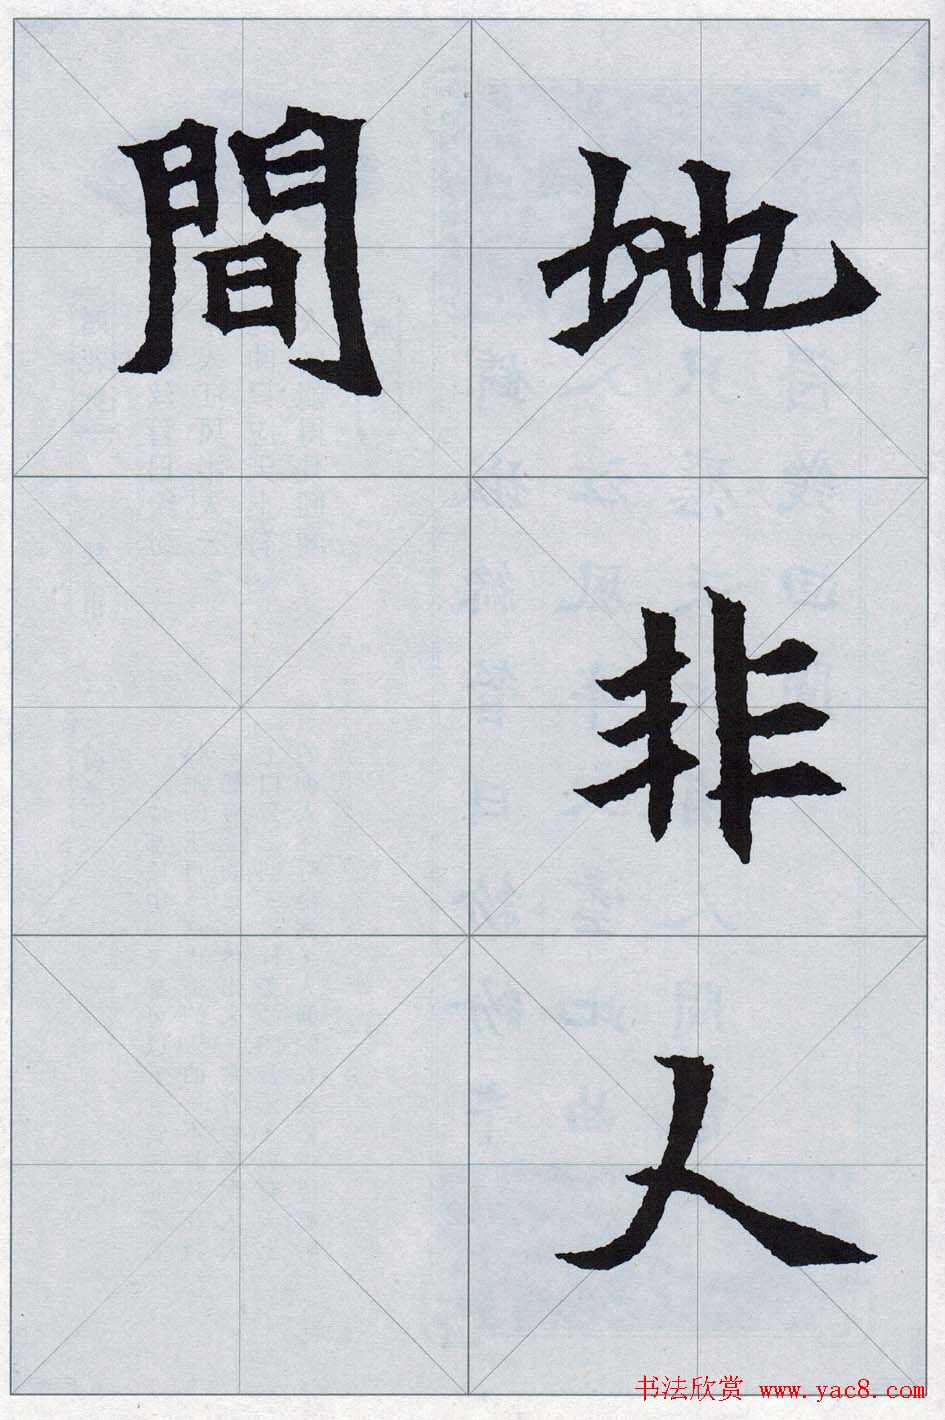 地非人
間
书法欣赏 www.yac8.com